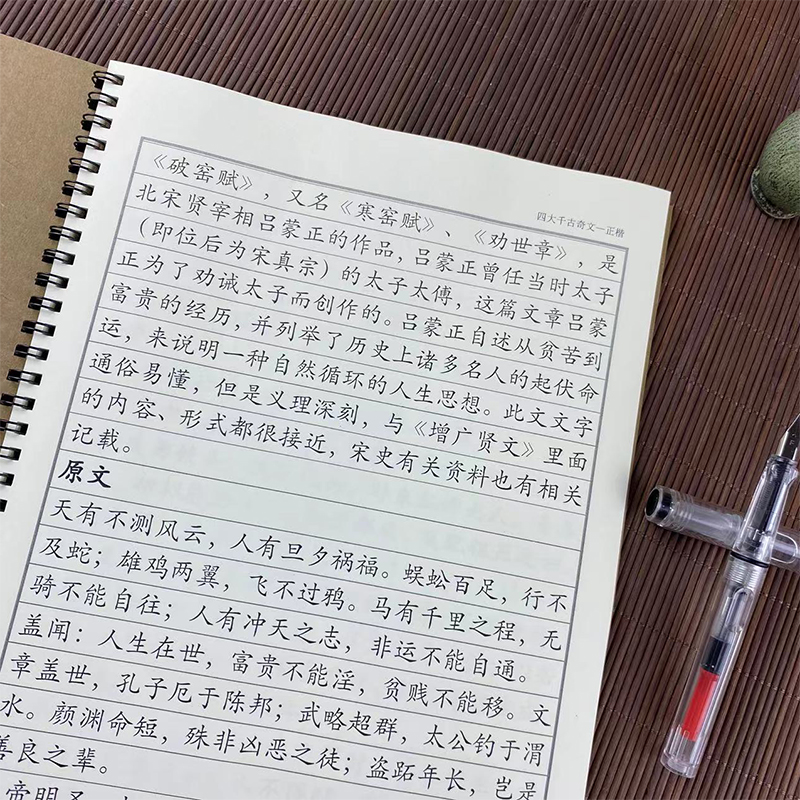 四大千古奇文—正楷
《破窑赋》，又名《寒窑赋》、《劝世章》，是
北宋贤宰相吕蒙正的作品，吕蒙正曾任当时太子
（即位后为宋真宗）的太子太傅，这篇文章吕蒙
正为了劝诫太子而创作的。吕蒙正自述从贫苦到
富贵的经历，并列举了历史上诸多名人的起伏命
运，来说明一种自然循环的人生思想。此文文字
通俗易懂，但是义理深刻，与《增广贤文》里面
的内容、形式都很接近，宋史有关资料也有相关
记载。
原文
天有不测风云，人有旦夕祸福。蜈蚣百足，行不
及蛇；雄鸡两翼，飞不过鸦。马有千里之程，无
骑不能自往；人有冲天之志，非运不能自通。
盖闻：人生在世，富贵不能淫，贫贱不能移。文
章盖世，孔子厄于陈邦；武略超群，太公钓于渭
水。颜渊命短，殊非凶恶之徒；盗跖年长，岂是
善良之辈。